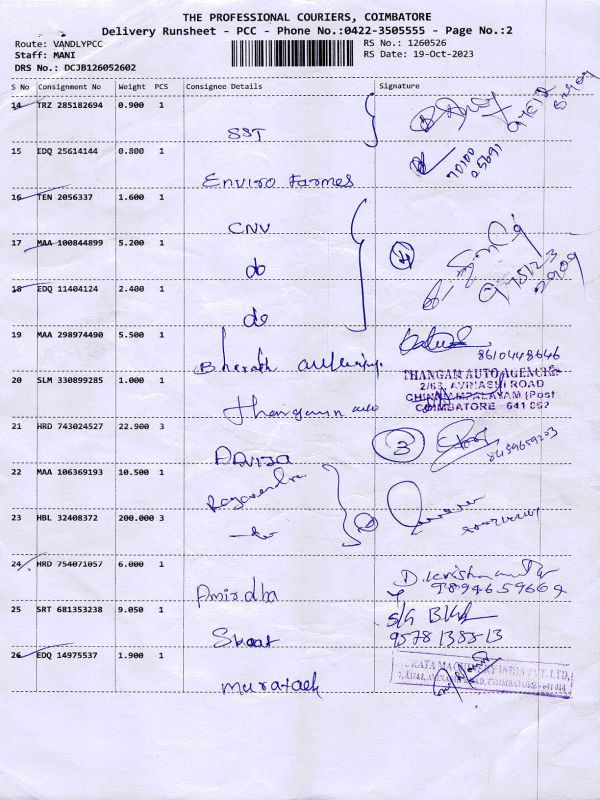 THE PROFESSIONAL COURIERS, COIMBATORE
Delivery Runsheet - PCC - Phone No.:0422-3505555 - Page No.:2
Route: VANDLYPCC RS No.: 1260526
Staff: MANI RS Date: 19-Oct-2023
DRS No.: DCJB126052602
S No Consignment No Weight PCS Consignee Details Signature
14 TRZ 285182694 0.900 1
SST
15 EDQ 25614144 0.800 1
Enviro Farmes
70100
25691
16 TEN 2056337 1.600 1
CNV
17 MAA 100844899 5.200 1
do
18 EDQ 11404124 2.400 1
do
19 MAA 298974490 5.500 1
Bharath
8610448646
20 SLM 330899285 1.000 1
THANGAM AUTO AGENCIES
2/63, AVINASHI ROAD
CHINNIAMPALAYAM (Post)
COIMBATORE - 641 062
21 HRD 743024527 22.900 3
3
22 MAA 106369193 10.500 1
Ragavendra
23 HBL 32408372 200.000 3
24 HRD 754071057 6.000 1
Amirdha
9894659669
25 SRT 681353238 9.050 1
9578138513
26 EDQ 14975537 1.900 1
MACHINERY INDIA PVT. LTD.
ROAD, COIMBATORE - 641 014